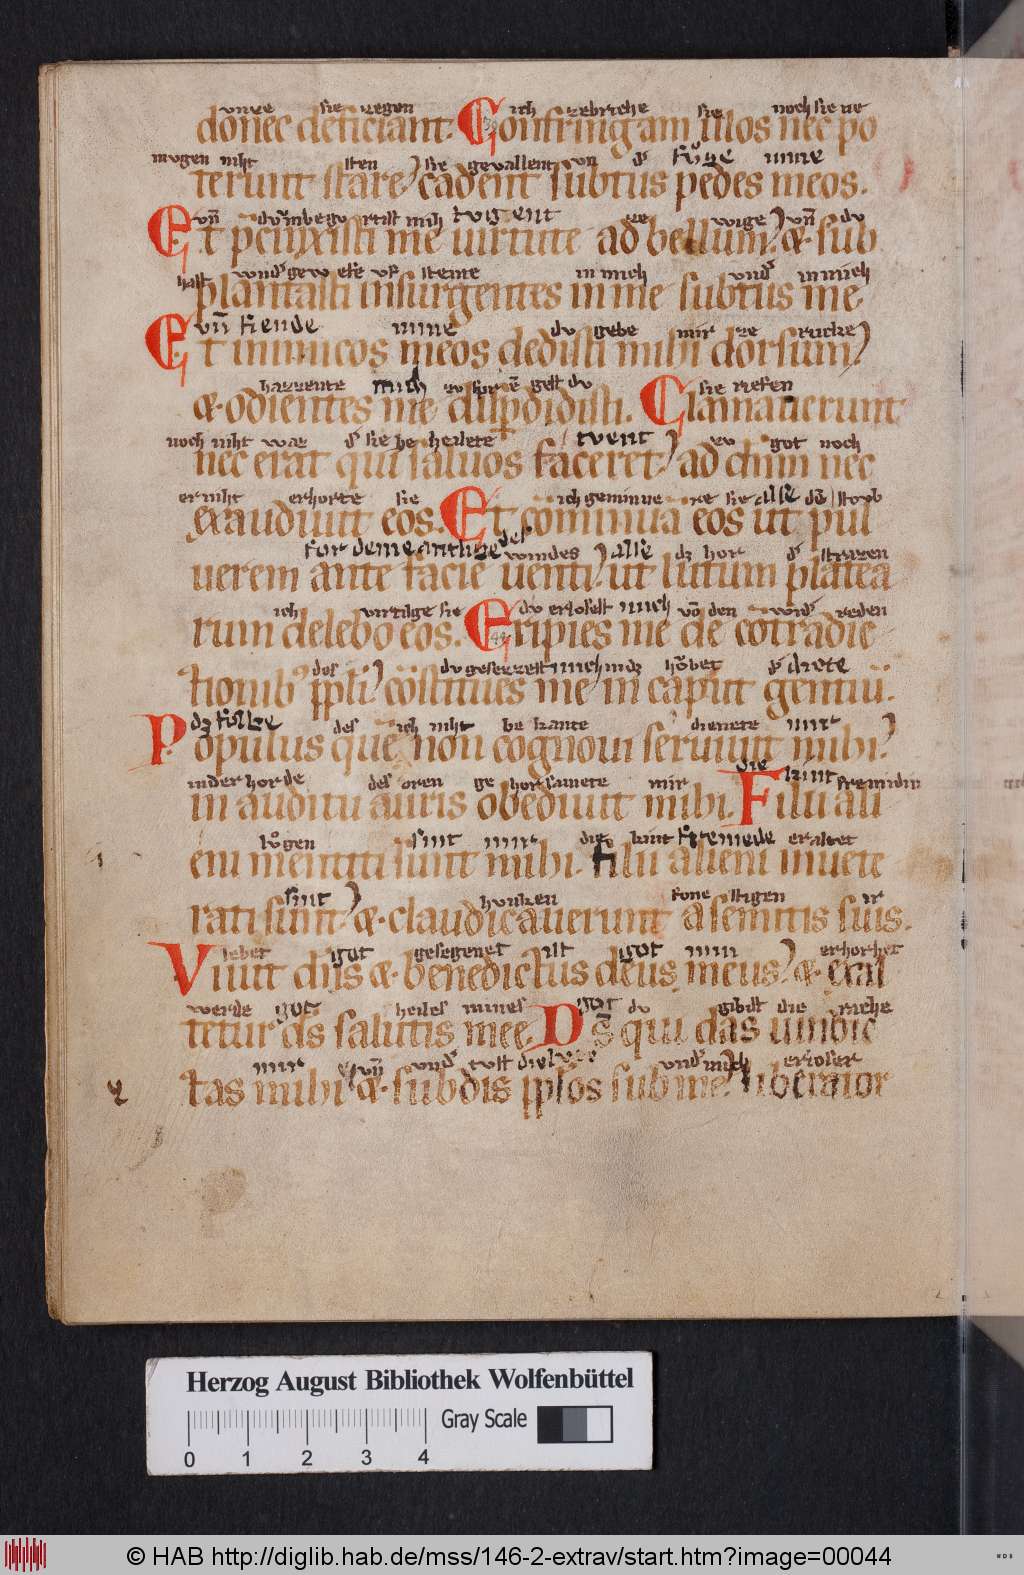 unze sie zegen ich zebriche sie noch sie ne
donec deficiant. Confringam illos nec po
mugen niht sten sie gevallent vn d' fu̓ze mine
terunt stare) cadent subtus pedes meos.
vn̄ du mbegurtist mih tugent ze wige) vn̄ du
Et p̄cinxisti me uirtute ad bellum. & sub
hast vnd' gew steente in mich vnd' in mich
plantasti insurgentes in me subtus me
vn̄ fiende mine du gebe mir ze rucke)
Et inimicos meos dedisti mihi dorsum)
hazzente mich zu gest du sie riefen
& odientes me disp̱didisti. Clamauerunt
noch niht waz d' sie behelete tuent) zu got noch
nec erat qui saluos faceret) ad dn̄m nec
er niht erhorte sie ich geminne ze sie alse dc̄ stoub
exaudiuit eos. Et cōminua eos ut pul
for deme antluze des windes) alse dz hor d' strazen
uerem ante facie uenti) ut lutum platea
ich virtilge sie du erlosest mich vō den wid' reden
rum delebo eos. Eripies me de cōtradic
des du gesezzest mich indz ho̓bet d' diete
tionib' ppl̄i) cōstitues me in caput gentiū.
dz folke des ich niht bekante dienete mir
Populus quē non cognoui seruiuit mihi)
in der horde des oren gehorsamete mir die kint fremidin
in auditu auris obediuit mihi. Filii ali
lu̓gen sint mir die kint fremede eraltet
eni mentiti sunt mihi. filii alieni inuete
sint) hunken fone stigen ir
rati sunt) & claudicauerunt a semitis suis.
lebet got gesegenet ist got min) erhohet
Viuit dn̄s & benedictus deus meus) & exal
werde got heiles mines got du gibist die rache
tetur ds̄ salutis mee. Ds̄ qui das uindic
mir vn̄ vnd' tust die vnd' mich erloser
tas mihi & subdis ipsos sub me. liberator
Herzog August Bibliothek Wolfenbüttel
Gray Scale
0 1 2 3 4
© HAB http://diglib.hab.de/mss/146-2-extrav/start.htm?image=00044
WDB